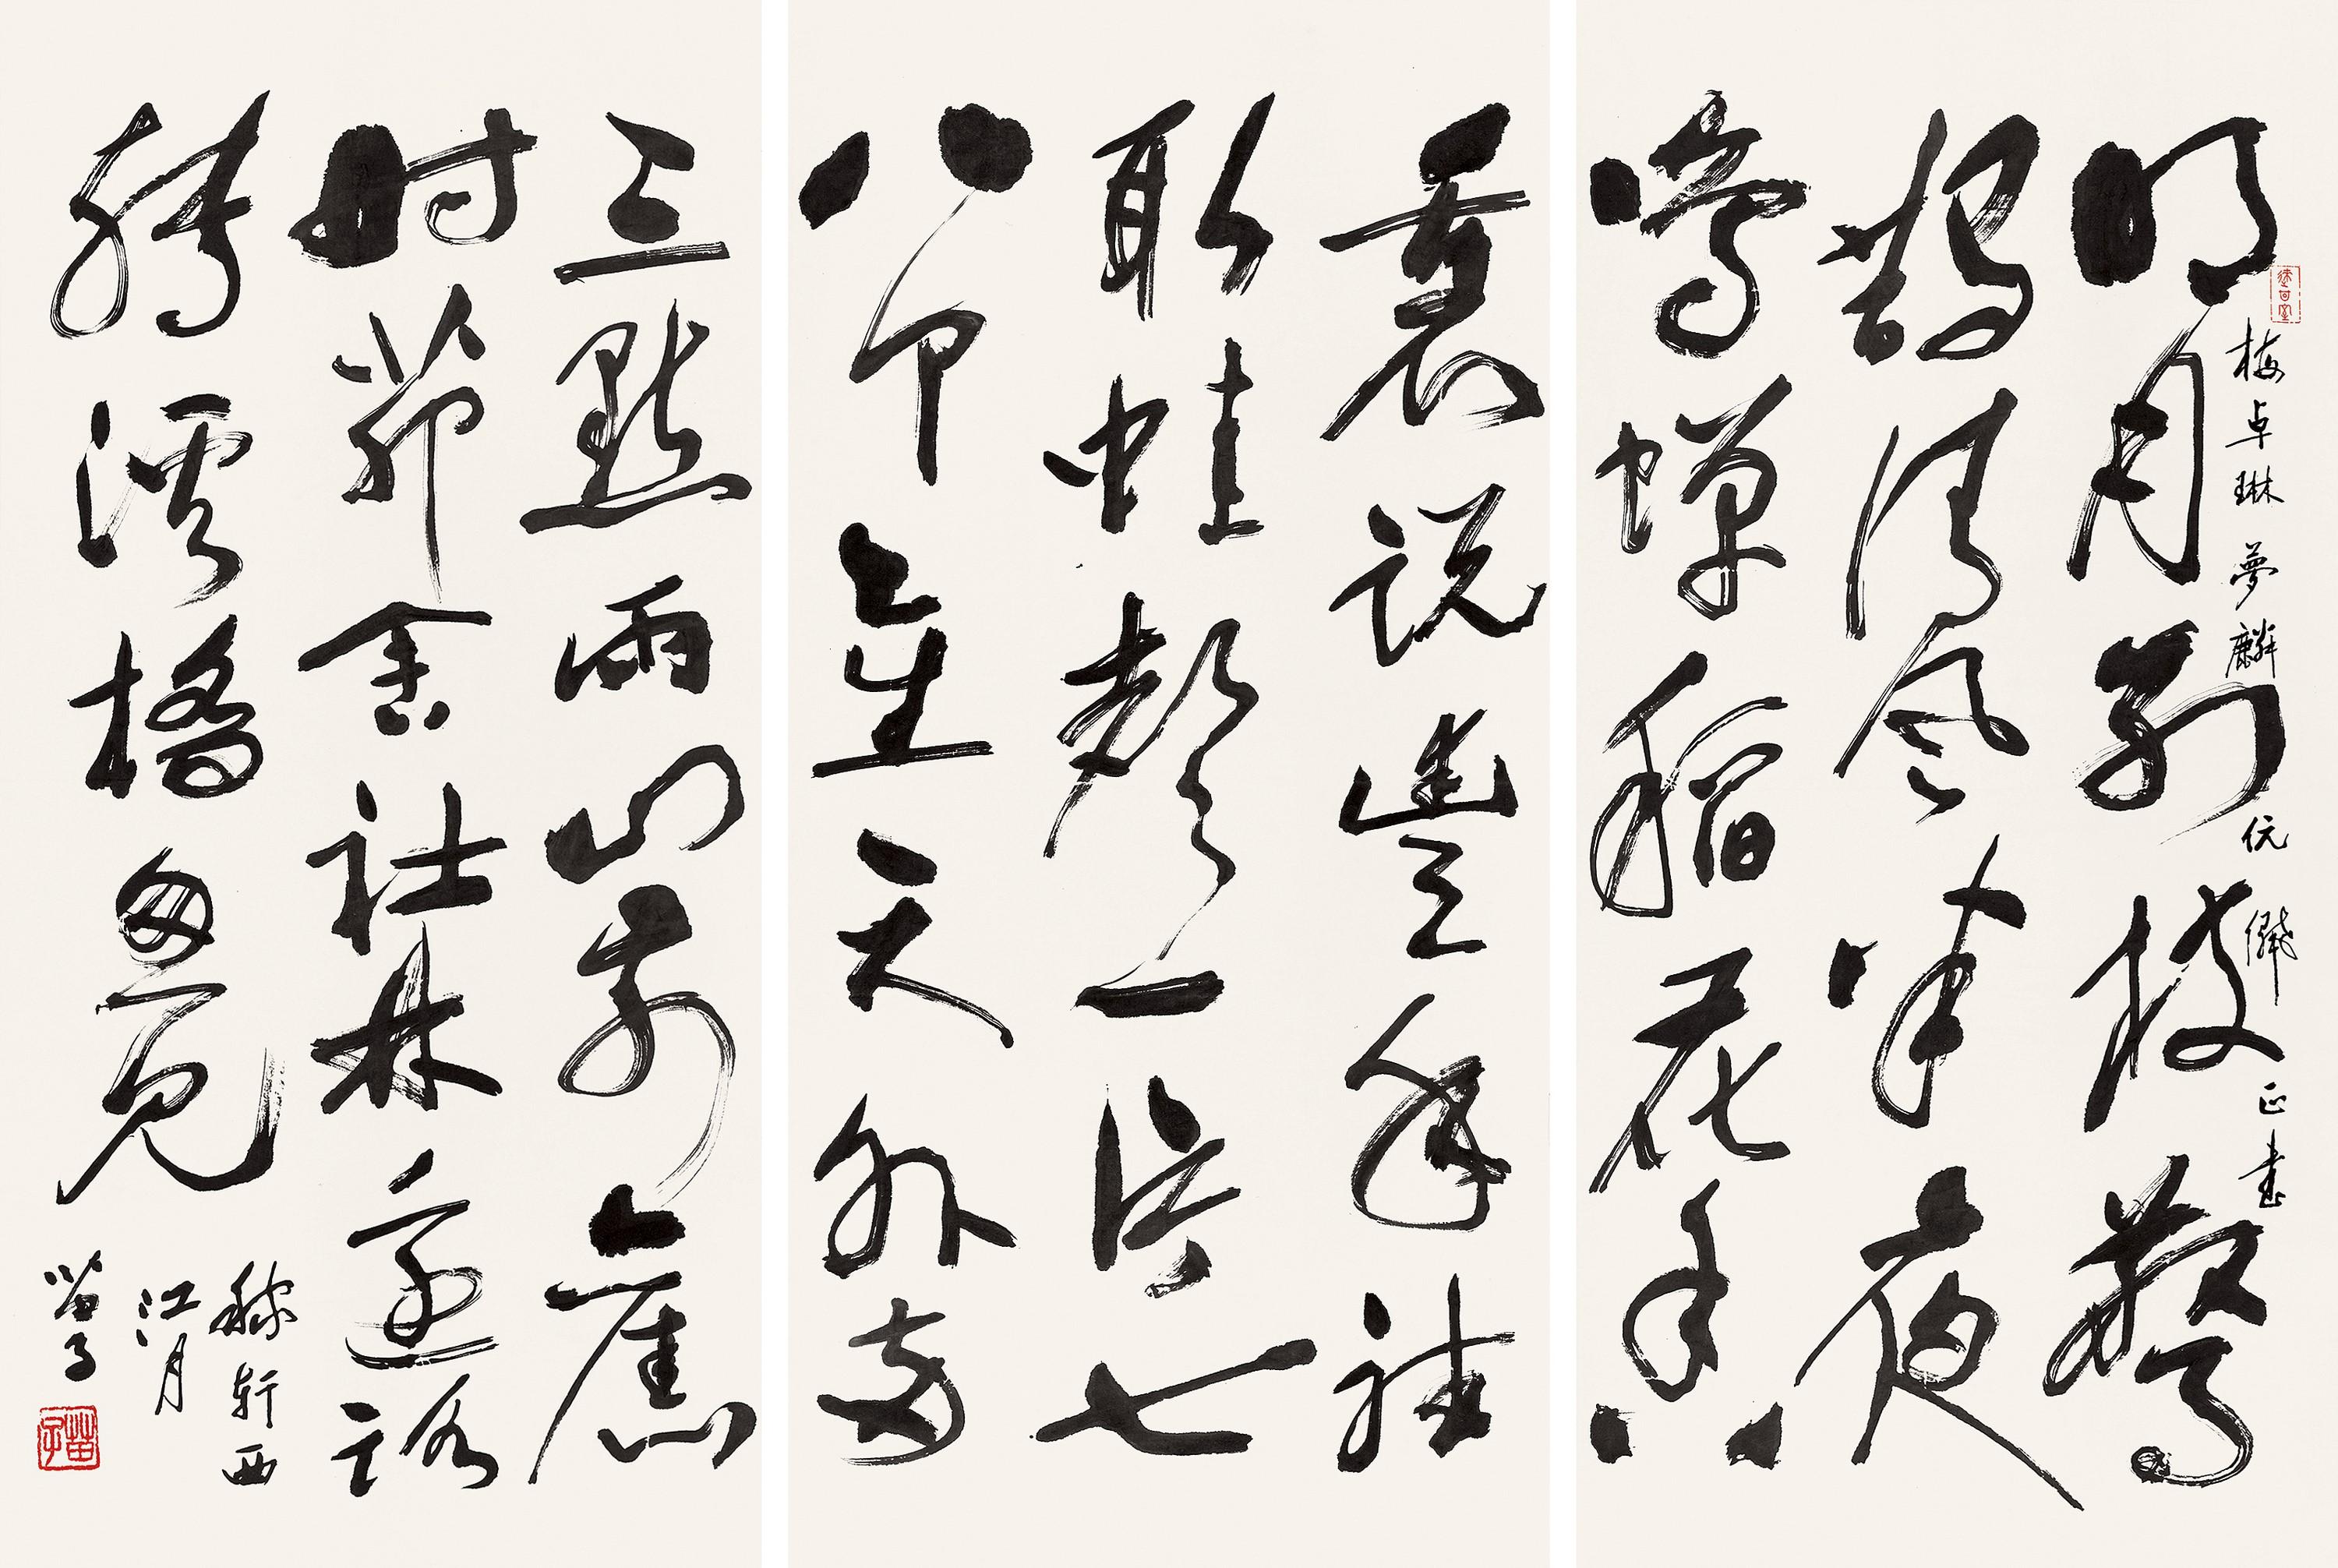 梅卓琳夢麟伉儷正書
明月別枝驚
鵲清風半夜
鳴蟬稻花香
裏說豐年聽
取蛙聲一片七
八个星天外两
三點雨山前舊
时茆舍社林邊路
轉溪橋怱見
稼軒西
江月
苗子
苗子